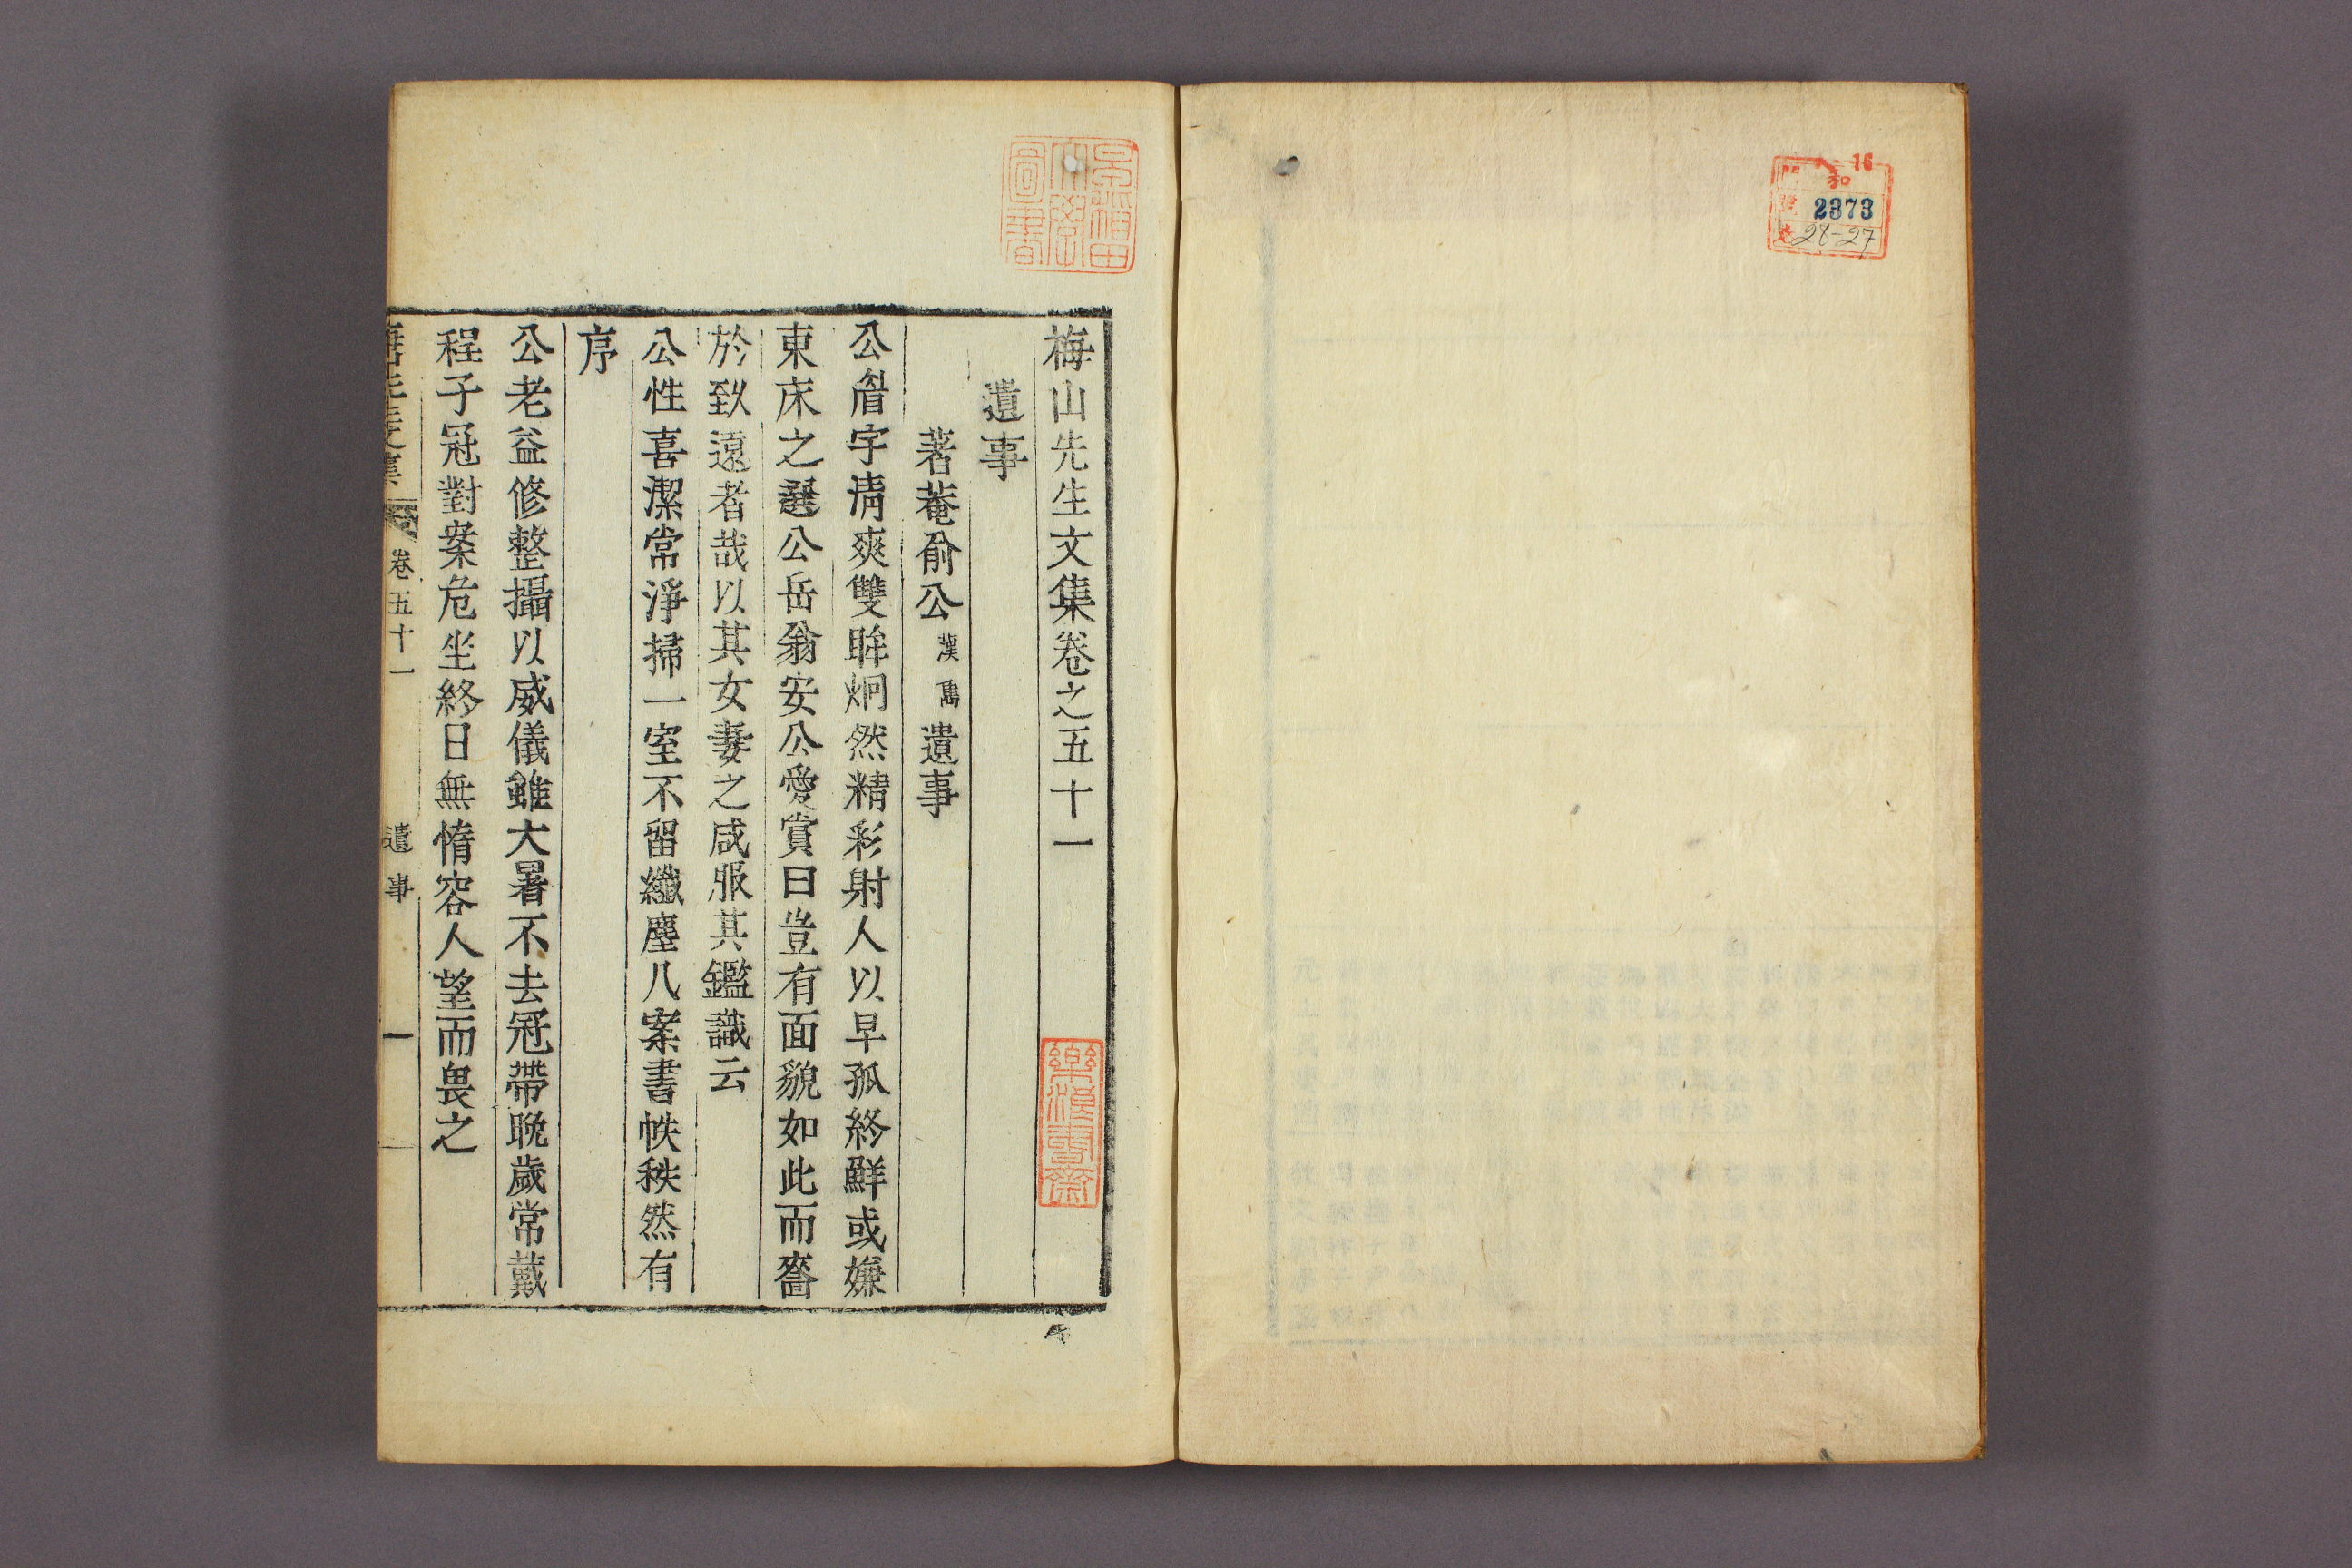 16
和
2373
28-27
早稲田
大學
圖書
梅山先生文集卷之五十一
遺事
著菴俞公漢雋遺事
公眉宇清爽雙眸炯然精彩射人以早孤終鮮或嫌
東床之選公岳翁安公愛賞曰豈有面貌如此而嗇
於致遠者哉以其女妻之咸服其鑑識云
公性喜潔常淨掃一室不留纖塵几案書帙秩然有
序
公老益修整攝以威儀雖大暑不去冠帶晩歲常戴
程子冠對案危坐終日無惰容人望而畏之
卷五十一
遺事
一